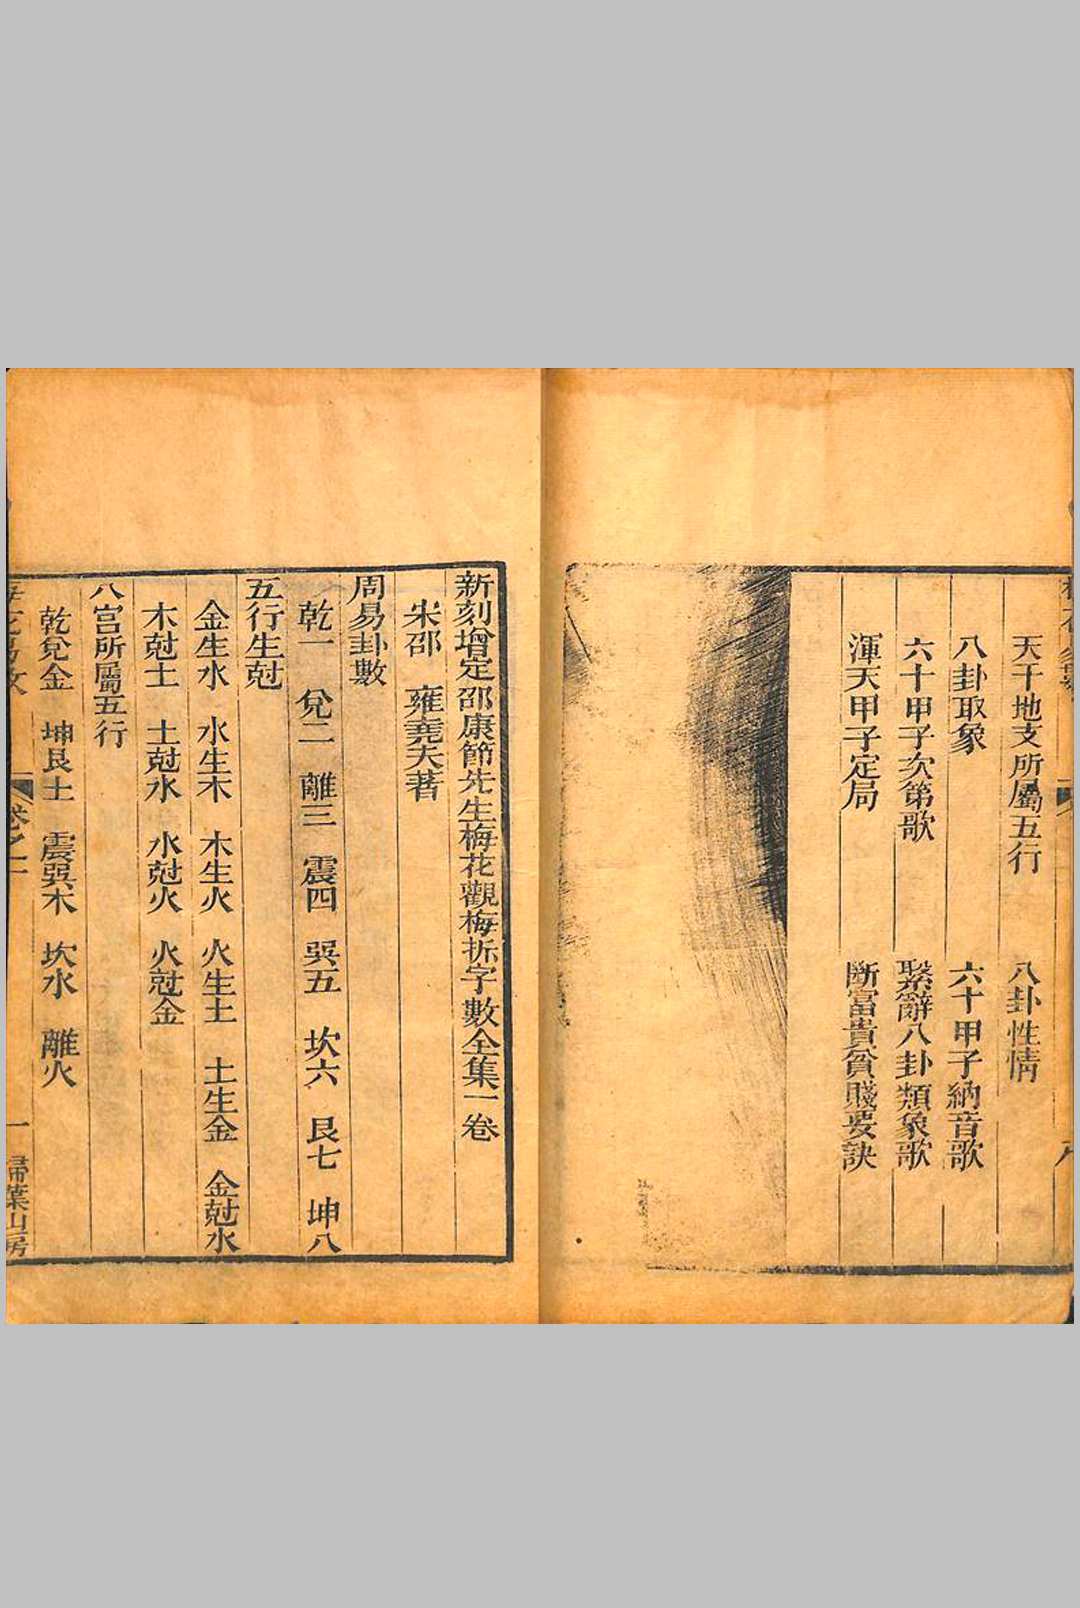 天干地支所屬五行　八卦性情
八卦取象　六十甲子納音歌
六十甲子次第歌　繫辭八卦類象歌
渾天甲子定局　斷富貴貧賤要訣
新刻增定邵康節先生梅花觀梅拆字數全集一卷
宋邵　雍堯夫著
周易卦數
乾一　兌二　離三　震四　巽五　坎六　艮七　坤八
五行生尅
金生水　水生木　木生火　火生土　土生金　金尅水
木尅土　土尅水　水尅火　火尅金
八宮所屬五行
乾兌金　坤艮土　震巽木　坎水　離火
卷之一　一　掃葉山房